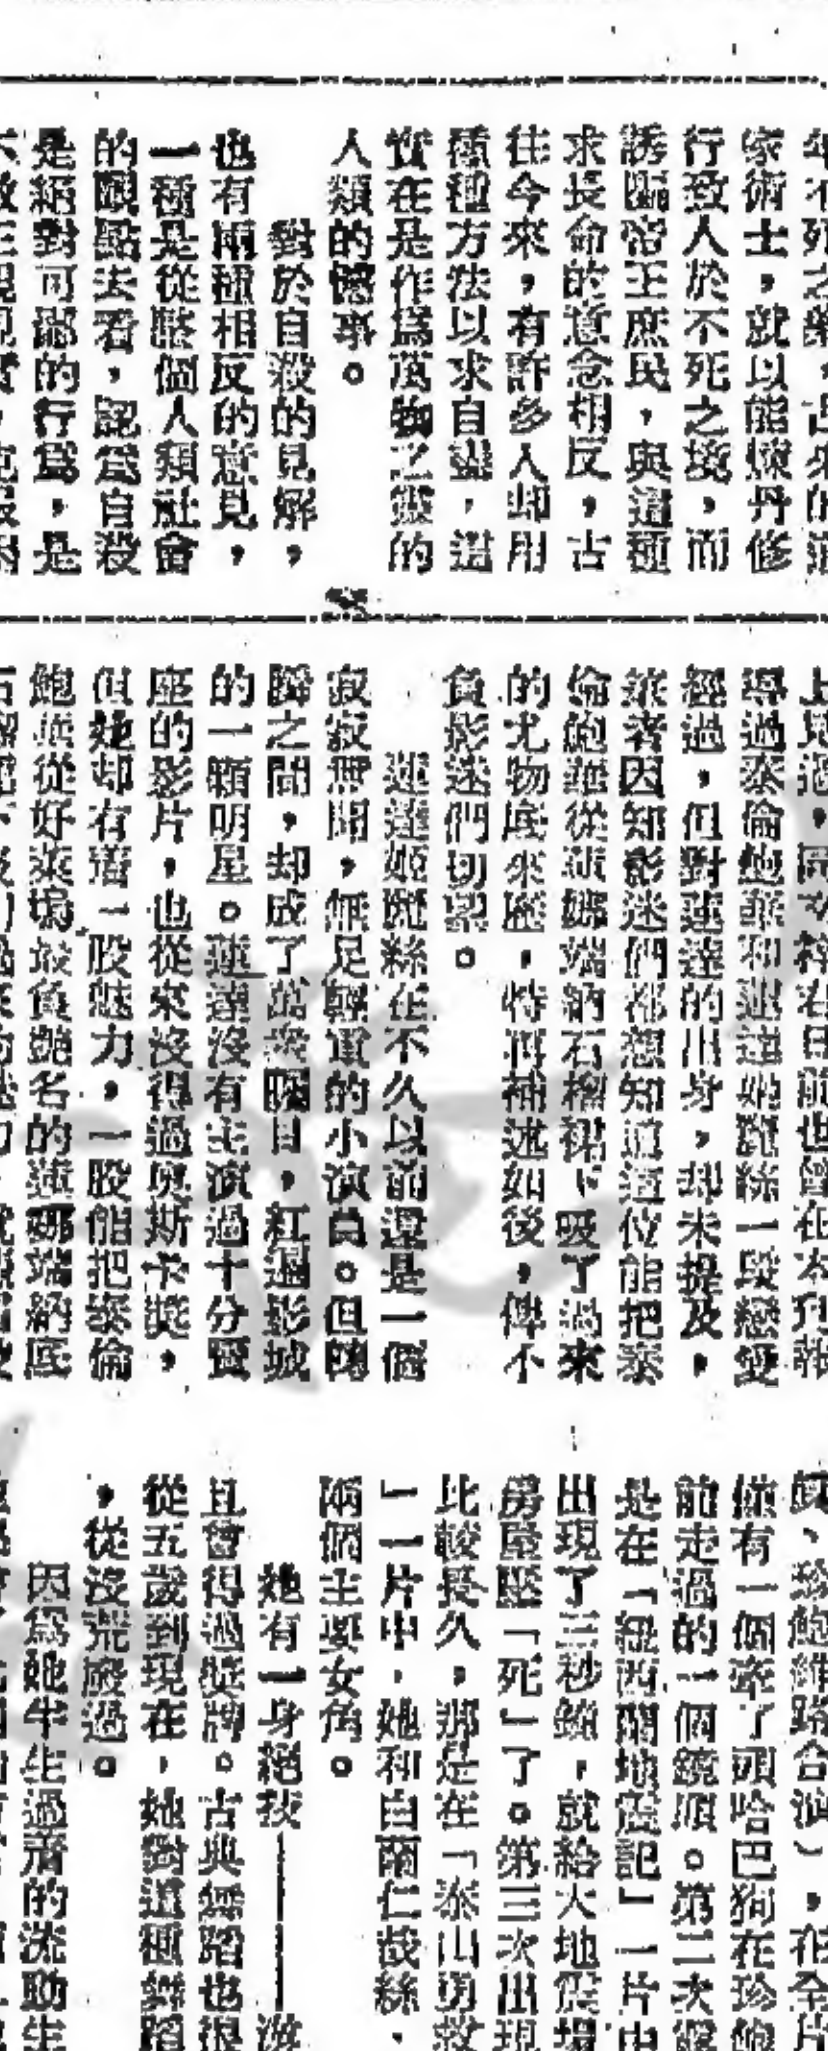 家術士，就以能煉丹修
行致人於不死之境，而
誘騙帝王庶民，與這種
求長命的意念相反，古
往今來，有許多人却用
種種方法以求自盡，這
實在是作爲萬物之靈的
人類的憾事。
對於自殺的見解，
也有兩種相反的意見，
一種是從整個人類社會
的觀點去看，認爲自殺
是絕對可鄙的行爲，是
導過泰倫鮑華和蓮達姬麗絲一段戀愛
經過，但對蓮達的出身，却未提及，
筆者因知影迷們都想知道這位能把泰
倫鮑華從蓮娜端納石榴裙下吸了過來
的尤物底來歷，特再補述如後，俾不
負影迷們切望。
蓮達姬麗絲在不久以前還是一個
寂寂無聞，無足輕重的小演員。但轉
瞬之間，却成了萬衆矚目，紅遍影城
的一顆明星。蓮達沒有主演過十分賣
座的影片，也從來沒得過奧斯卡獎，
但她却有着一股魅力，一股能把泰倫
鮑華從好萊塢最負艷名的蓮娜端納底
僅有一個牽了頭哈巴狗在珍鮑
前走過的一個鏡頭。第二次
是在「紐西蘭地震記」一片中
出現了三秒鐘，就給大地震塲
房屋壓「死」了。第三次出現
比較長久，那是在「泰山勇救
」一片中，她和白蘭仁裁絲，
兩個主要女角。
她有一身絕技——游
且曾得過獎牌。古典舞蹈也很
從五歲到現在，她對這種舞蹈
，從沒荒廢過。
因爲她半生過着的流動生